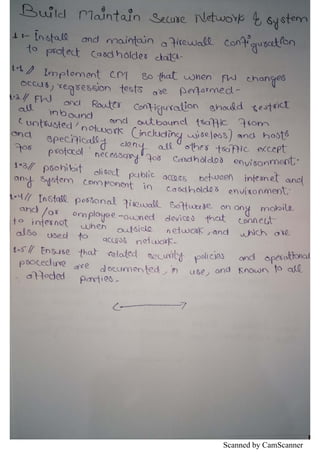 Build Maintain Secure Network & System
1.1- Install and maintain a firewall configuration
to protect cardholder data.
1.1 // Implement CM so that when FW changes
occurs, regression tests are performed-
1.2 // FW and Router configuration should restrict
all inbound and outbound traffic from
(untrusted network (including wireless) and hosts
and specifically deny all other traffic except
for protocol necessary for Cardholdes environment.
1.3 // prohibit direct public access between internet and
any system component in Cardholdes environment.
1.4 // Install personal firewall Software on any mobile
and/or employee-owned devices that connect
to internet when outside network, and which are
also used to access network.
1.5 // Ensure that related security policies and operational
procedure are documented, in use, and known to all
affected parties.
Scanned by CamScanner